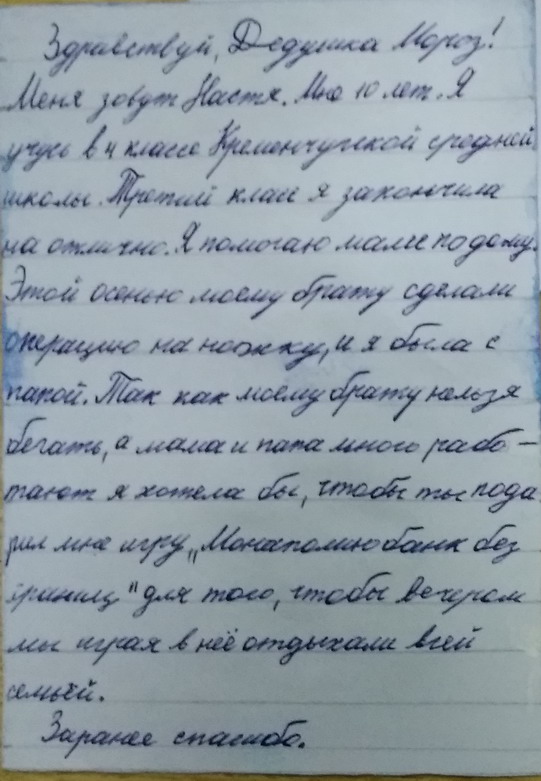 Здравствуй, Дедушка Мороз!
Меня зовут Настя. Мне 10 лет. Я
учусь в 4 классе Кременчугской средней
школы. Третий класс я закончила
на отлично. Я помогаю маме по дому.
Этой осенью моему брату сделали
операцию на ножку, и я была с
папой. Так как моему брату нельзя
бегать, а мама и папа много рабо-
тают я хотела бы, чтобы ты пода
рил мне игру „Монаполию банк без
границ" для того, чтобы вечером
мы играя в неё отдыхали всей
семьёй.
Заранее спасибо.